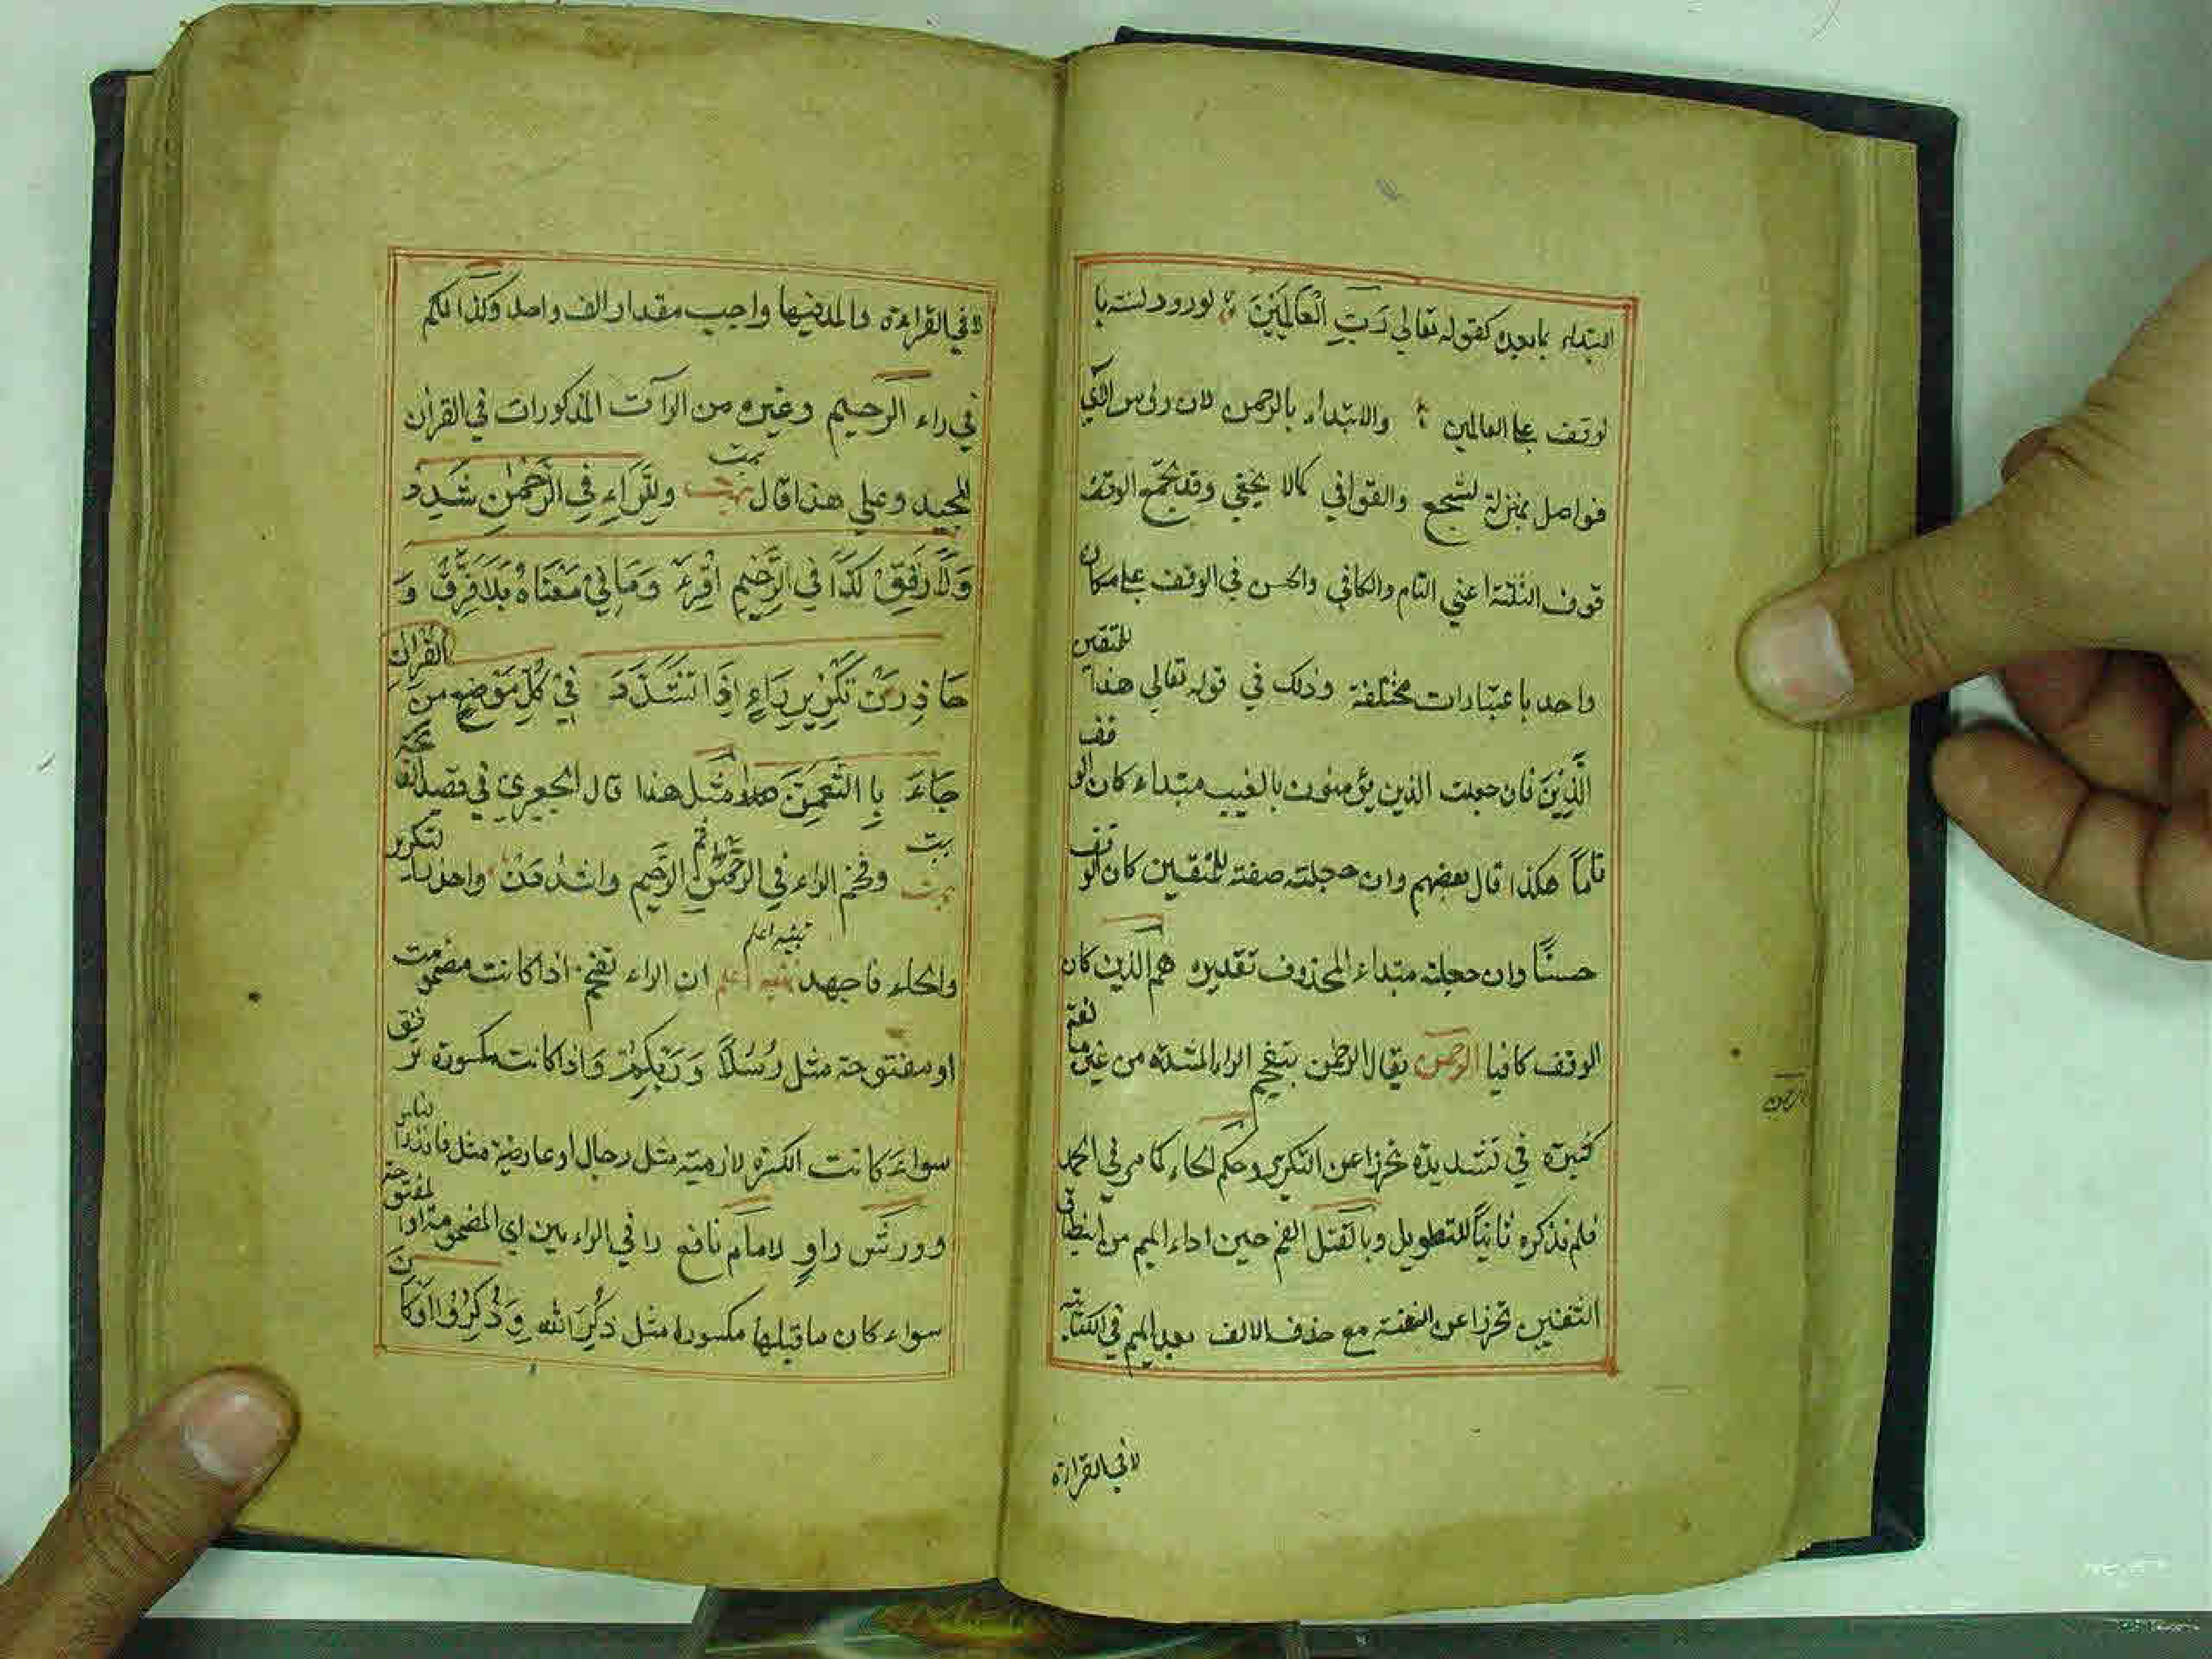 ابتداء بما بعده كقوله تعالى رَبِّ الْعَالَمِيْنَ لورود لسنة با
لوقف على العالمين والابتداء بالرحمن لان روس الآي
فواصل بمنزلة لسجع والقوافي كما لا يخفي وقد يجمع الوقف
قوف الثلثة اعني التام والكافي والحسن في الوقف على مكان
واحد باعتبارات مختلفة وذلك في قوله تعالى هذا للمتقين
الَّذِيْنَ فان جعلت الذين يؤمنون بالغيب مبتداء كان الوقف
تاماً هكذا قال بعضهم وان جعلته صفة للمتقين كان الوقف
حسنًا وان جعلته مبتداء المحذوف تقديره هم الذين كان
الوقف كافيا الرحمن يقال الرحمن بتفخيم الراء المشددة من غير ما
كثيرة في تشديده تحرزا عن التكرير وحكم الحاء كما مر في الحمد
فلم نذكره ثانياً للتطويل وبالتقتل الفم حين اداء الميم من انطباق
الشفتين تحرزا عن الغنة مع حذف الالف بعد الميم في الكتابة
لا في القراءة
الرحمن
لا في القراءة والمد فيها واجب مقدار الف واحد وكذا لكم
في راء الرحيم وغيره من الراآت المذكورات في القران
المجيد وعلى هذا قال بيت وللرَّاءِ فِي الرَّحْمٰنِ شَدِّدْ
وَلَا رَقِّقْ كَذَا فِي الرَّحِيْمِ اقْرِءْ وَمَا فِيْ مَعْنَاهُ بَلَا فَرِّقْ وَ
حَاذِرَنْ تَكْرِيْرِ رَاءٍ اِذَا تَشَدَّدَ فِيْ كُلِّ مَوْضِعٍ مِنَ الْقُرْاٰنِ
جَاءَ مثل هذا قال الجعبري في قصيد
بيت وفخم الراء في الرحمن الرحيم واشددن واحذر لتكرير
والحاء فاجهد تنبيه اعلم ان الراء تفخم اذا كانت مضمومت
او مفتوحة مثل رُسُلًا وَرَبُّكُمْ وَاذا كانت مكسورة ترقق
سواء كانت الكسرة لازمية مثل رجال او عارضة مثل فانذر الناس
وورش راوٍ لامام نافع را في الراء بين اي المضمومة او المفتوحة
سواء كان ما قبلها مكسورا مثل ذكر الله